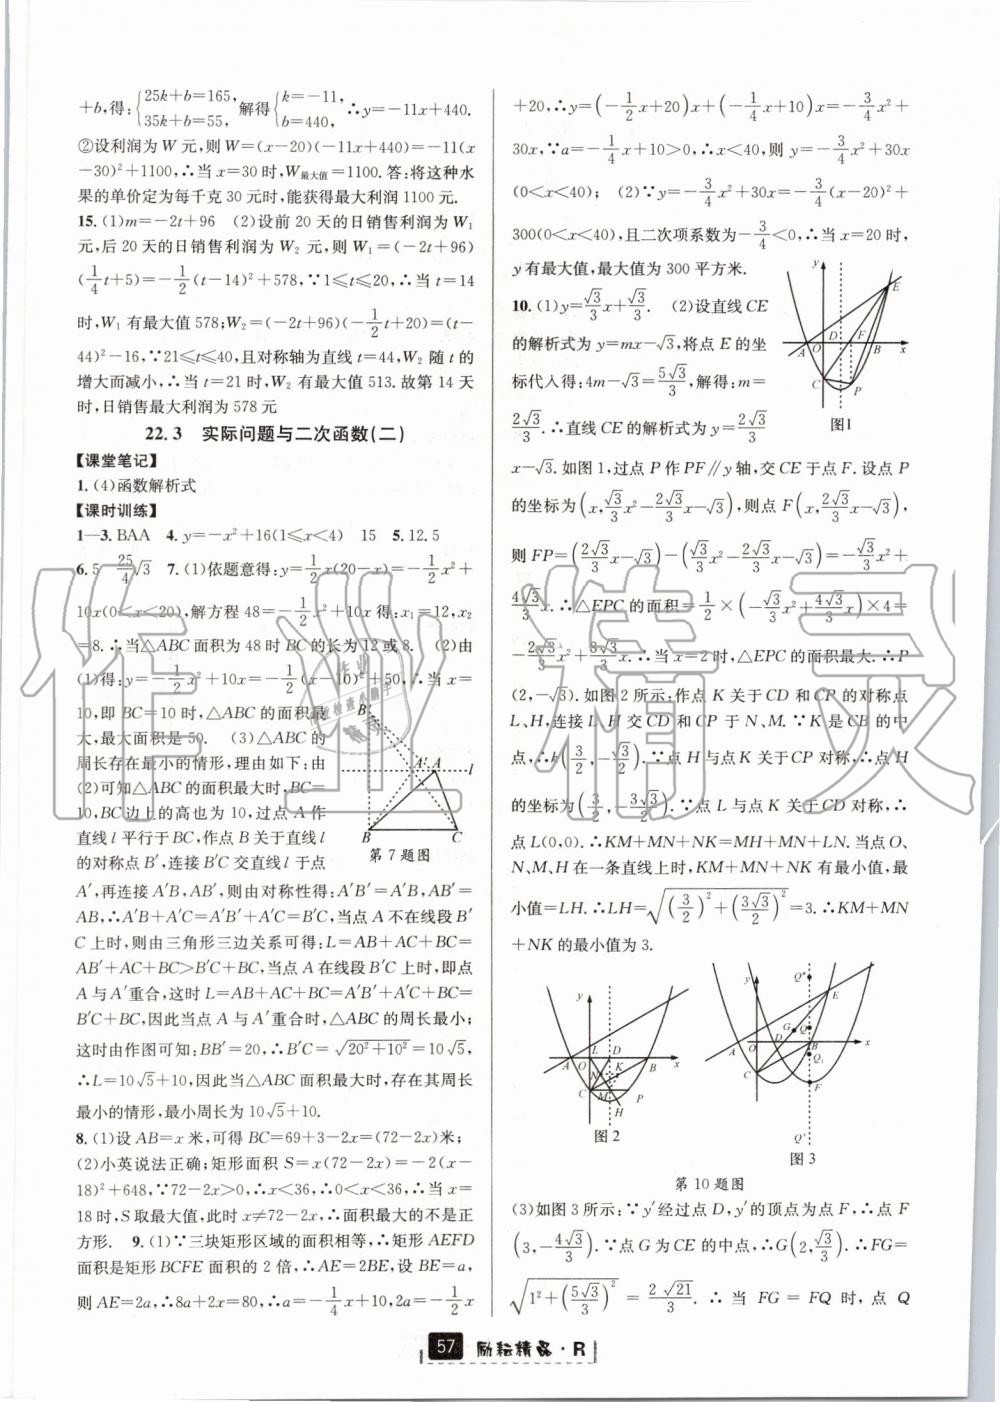 +b,得:{25k+b=165, 35k+b=55, 解得{k=-11, b=440, ∴y=-11x+440.
②设利润为 W 元,则 W=(x-20)(-11x+440)=-11(x
-30)²+1100,∴当 x=30 时,W最大值=1100. 答:将这种水
果的单价定为每千克 30 元时,能获得最大利润 1100 元.
15. (1)m=-2t+96 (2)设前 20 天的日销售利润为 W₁
元,后 20 天的日销售利润为 W₂ 元,则 W₁=(-2t+96)
(1/4 t+5)=-1/2(t-14)²+578,∵1⩽t⩽20,∴当 t=14
时,W₁ 有最大值 578;W₂=(-2t+96)(-1/2 t+20)=(t-
44)²-16,∵21⩽t⩽40,且对称轴为直线 t=44,W₂ 随 t 的
增大而减小,∴当 t=21 时,W₂ 有最大值 513. 故第 14 天
时,日销售最大利润为 578 元
22.3 实际问题与二次函数(二)
【课堂笔记】
1. (4)函数解析式
【课时训练】
1—3. BAA 4. y=-x²+16(1⩽x<4) 15 5. 12.5
6. 5 25/4 √3 7. (1)依题意得:y=1/2 x(20-x)=-1/2 x²+
10x(0<x<20),解方程 48=-1/2 x²+10x 得:x₁=12,x₂
=8. ∴当△ABC 面积为 48 时 BC 的长为 12 或 8. (2)由
(1)得:y=-1/2 x²+10x=-1/2(x-10)²+50,∴当 x=
10,即 BC=10 时,△ABC 的面积最
大,最大面积是 50. (3)△ABC 的
周长存在最小的情形,理由如下:由
(2)可知△ABC 的面积最大时,BC=
10,BC 边上的高也为 10,过点 A 作
直线 l 平行于 BC,作点 B 关于直线 l
的对称点 B′,连接 B′C 交直线 l 于点
B′
A′ A l
B C
第 7 题图
A′,再连接 A′B,AB′,则由对称性得:A′B′=A′B,AB′=
AB,∴A′B+A′C=A′B′+A′C=B′C,当点 A 不在线段 B′
C 上时,则由三角形三边关系可得:L=AB+AC+BC=
AB′+AC+BC>B′C+BC,当点 A 在线段 B′C 上时,即点
A 与 A′重合,这时 L=AB+AC+BC=A′B′+A′C+BC=
B′C+BC,因此当点 A 与 A′重合时,△ABC 的周长最小;
这时由作图可知:BB′=20,∴B′C=√(20²+10²)=10√5,
∴L=10√5+10,因此当△ABC 面积最大时,存在其周长
最小的情形,最小周长为 10√5+10.
8. (1)设 AB=x 米,可得 BC=69+3-2x=(72-2x)米;
(2)小英说法正确;矩形面积 S=x(72-2x)=-2(x-
18)²+648,∵72-2x>0,∴x<36,∴0<x<36,∴当 x=
18 时,S 取最大值,此时 x≠72-2x,∴面积最大的不是正
方形. 9. (1)∵三块矩形区域的面积相等,∴矩形 AEFD
面积是矩形 BCFE 面积的 2 倍,∴AE=2BE,设 BE=a,
则 AE=2a,∴8a+2x=80,∴a=-1/4 x+10,2a=-1/2 x
+20,∴y=(-1/2 x+20)x+(-1/4 x+10)x=-3/4 x²+
30x,∵a=-1/4 x+10>0,∴x<40,则 y=-3/4 x²+30x
(0<x<40); (2)∵y=-3/4 x²+30x=-3/4(x-20)²+
300(0<x<40),且二次项系数为-3/4<0,∴当 x=20 时,
y 有最大值,最大值为 300 平方米.
10. (1)y=√3/3 x+√3/3. (2)设直线 CE
的解析式为 y=mx-√3,将点 E 的坐
标代入得:4m-√3=5√3/3,解得:m=
2√3/3. ∴直线 CE 的解析式为 y=2√3/3
y E A O D F B x C P
图1
x-√3. 如图 1,过点 P 作 PF∥y 轴,交 CE 于点 F. 设点 P
的坐标为(x,√3/3 x²-2√3/3 x-√3),则点 F(x,2√3/3 x-√3),
则 FP=(2√3/3 x-√3)-(√3/3 x²-2√3/3 x-√3)=-√3/3 x²+
4√3/3 x. ∴△EPC 的面积=1/2×(-√3/3 x²+4√3/3 x)×4=
-2√3/3 x²+8√3/3 x. ∴当 x=2 时,△EPC 的面积最大. ∴P
(2,-√3). 如图 2 所示:作点 K 关于 CD 和 CP 的对称点
L、H,连接 L、H 交 CD 和 CP 于 N、M. ∵K 是 CB 的中
点,∴k(3/2,-√3/2). ∵点 H 与点 K 关于 CP 对称,∴点 H
的坐标为(3/2,-3√3/2). ∵点 L 与点 K 关于 CD 对称,∴
点 L(0,0). ∴KM+MN+NK=MH+MN+LN. 当点 O、
N、M、H 在一条直线上时,KM+MN+NK 有最小值,最
小值=LH. ∴LH=√((3/2)²+(3√3/2)²)=3. ∴KM+MN
+NK 的最小值为 3.
y A L D B x N K C M P H
图 2
y Q″ E G Q A O D B x Q₁ C F Q′
图 3
第 10 题图
(3)如图 3 所示:∵y′经过点 D,y′的顶点为点 F,∴点 F
(3,-4√3/3). ∵点 G 为 CE 的中点,∴G(2,√3/3). ∴FG=
√(1²+(5√3/3)²)=2√21/3. ∴当 FG=FQ 时,点 Q
57 励耘精品·R
作业精灵